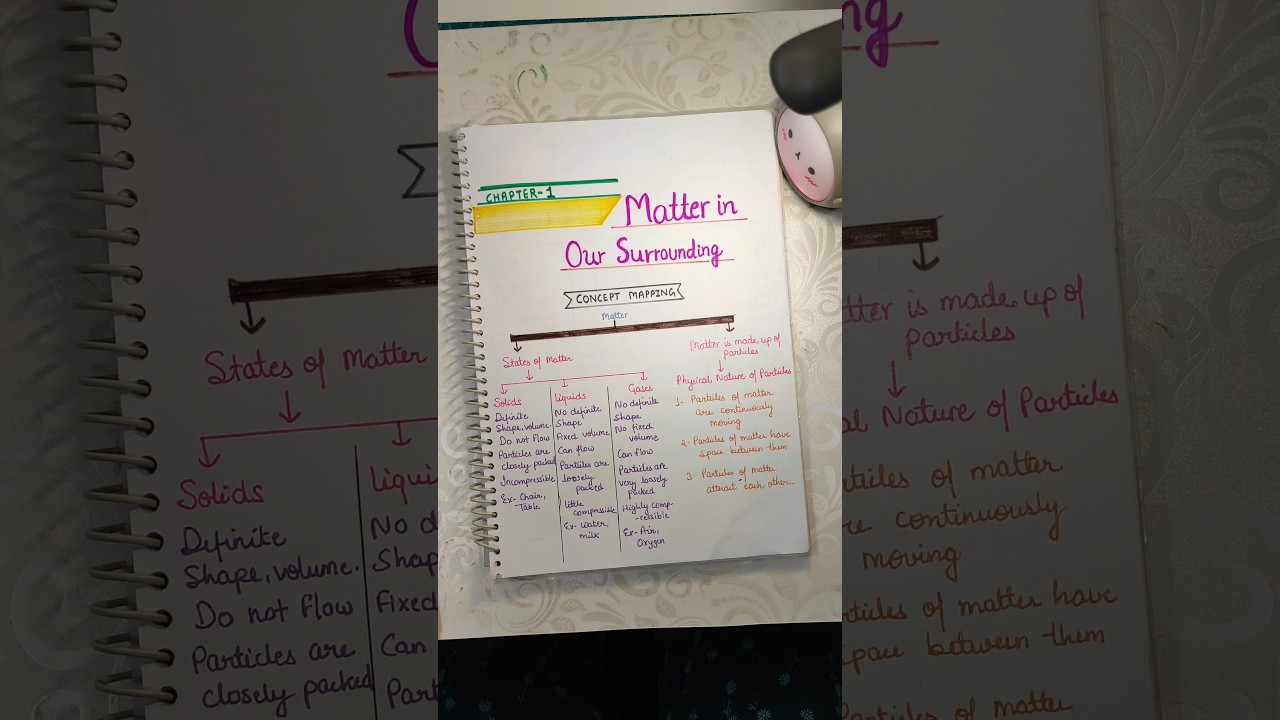 CHAPTER-1
Matter in
Our Surrounding
CONCEPT MAPPING
Matter
States of Matter
Solids
Definite
Shape, volume.
Do not flow
Particles are
closely packed
Incompressible
Ex- Chair,
Table
Liquids
No definite
Shape
Fixed volume
Can flow
Particles are
loosely
packed
little
compressible
Ex- water,
milk
Gases
No definite
Shape
No fixed
volume
Can flow
Particles are
very loosely
packed
Highly comp-
-ressible
Ex- Air,
Oxygen
Matter is made up of
particles
Physical Nature of Particles
1. Particles of matter
are continuously
moving
2. Particles of matter have
space between them
3. Particles of matter
attract each other.